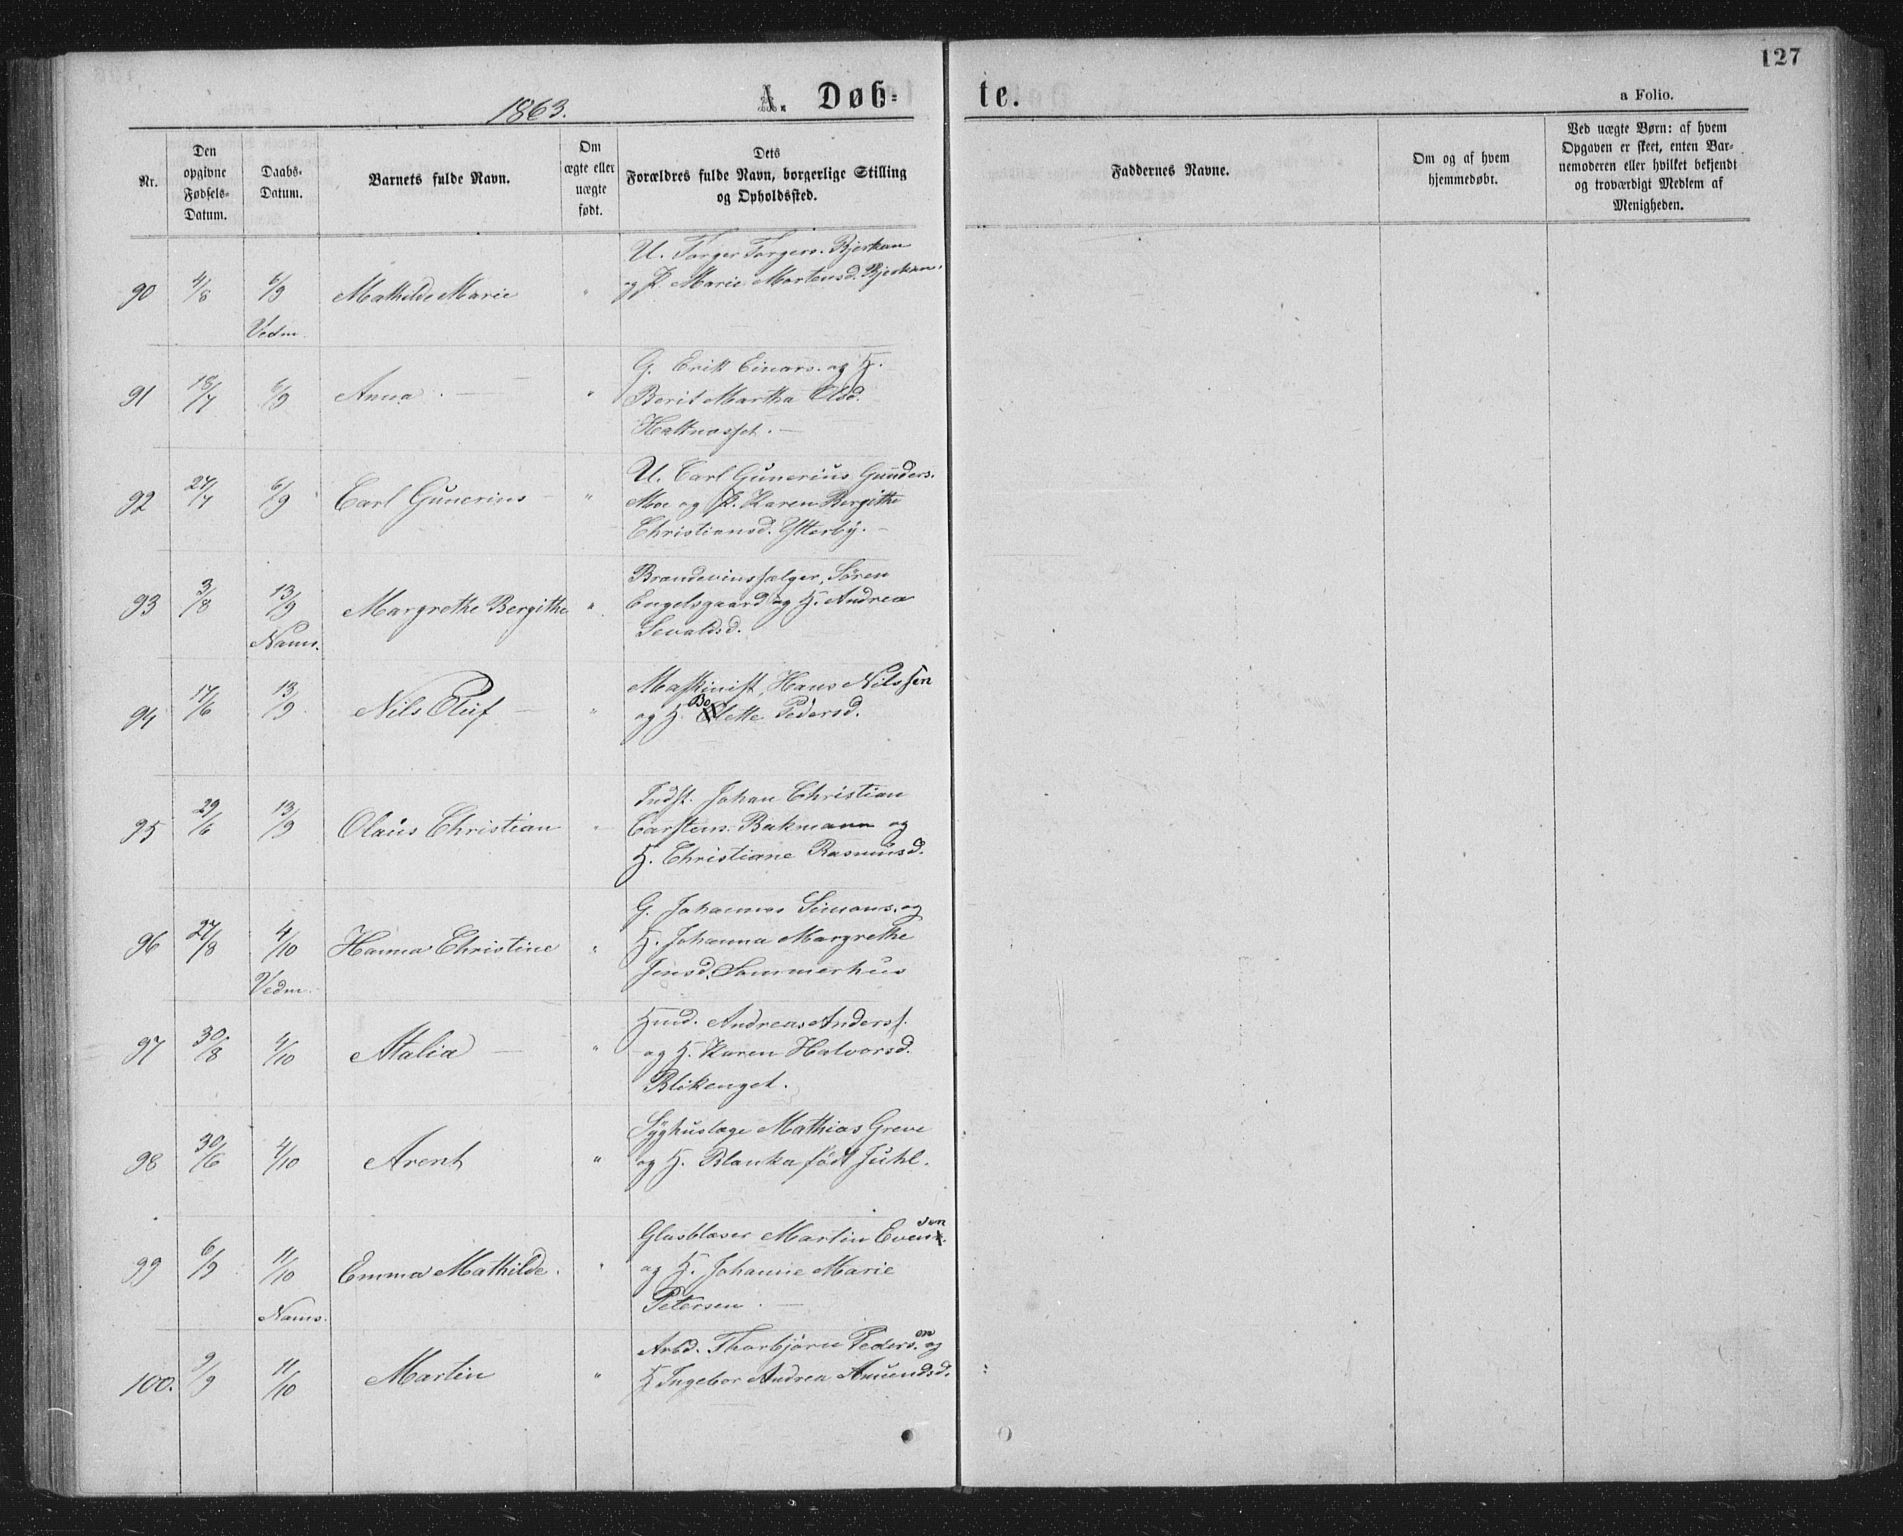 127
1863.
A. Døb-
te.
a Folio.
Nr.
Den
opgivne
Fødsels-
Datum.
Daabs-
Datum.
Barnets fulde Navn.
Om
ægte eller
uægte
født.
Dets
Forældres fulde Navn, borgerlige Stilling
og Opholdssted.
Faddernes Navne.
Om og af hvem
hjemmedøbt.
Ved uægte Børn: af hvem
Opgaven er skeet, enten Bar-
nemoderen eller hvilket bekjendt
og troværdigt Medlem af
Menigheden.
U. Torger Torgers. Bjerkan
90 4/8 6/9 Mathilde Marie " og P. Marie Martensd. Bjerkan.
Vedm.
G. Erik Einars. og H.
91 18/7 6/9 Anna. — " Berit Martha Olsd.
Hatknasset. —
U. Carl Gunerius Gunders.
92 27/7 6/9 Carl Gunerius — " Moe og P. Karen Bergithe
Christiansd. Ytterby. —
Brændeviinssælger, Søren
93 3/8 13/9 Margrethe Bergithe " Engelsgaard og H. Andrea
Navns. Sevaldsd.
Maskinist, Hans Nilssen
94 17/6 13/9 Nils Eluf — " og H. Bolette Pedersd.
Indst. Johan Christian
95 29/6 13/9 Olaus Christian " Carstens. Bakmann og
H. Christiane Rasmusd.
G. Johannes Simons. og
96 27/8 4/10 Hanna Christine " H. Johanna Margrethe
Vedm. Jensd. Sommerhus
Hmd. Andreas Anderss.
97 30/8 4/10 Atalia — " og H. Karen Halvorsd.
Blikenget.
Syghuslæge Mathias Greve
98 30/6 4/10 Arent " og H. Blanka født Juhl.
Glasblæser Martin Evensen
99 6/9 11/10 Emma Mathilde. " og H. Johanne Marie
Navns. Petersen. —
Arbd. Thorbjørn Pederson og
100. 9/9 11/10 Martin " H. Ingebor Andrea Amundsd.